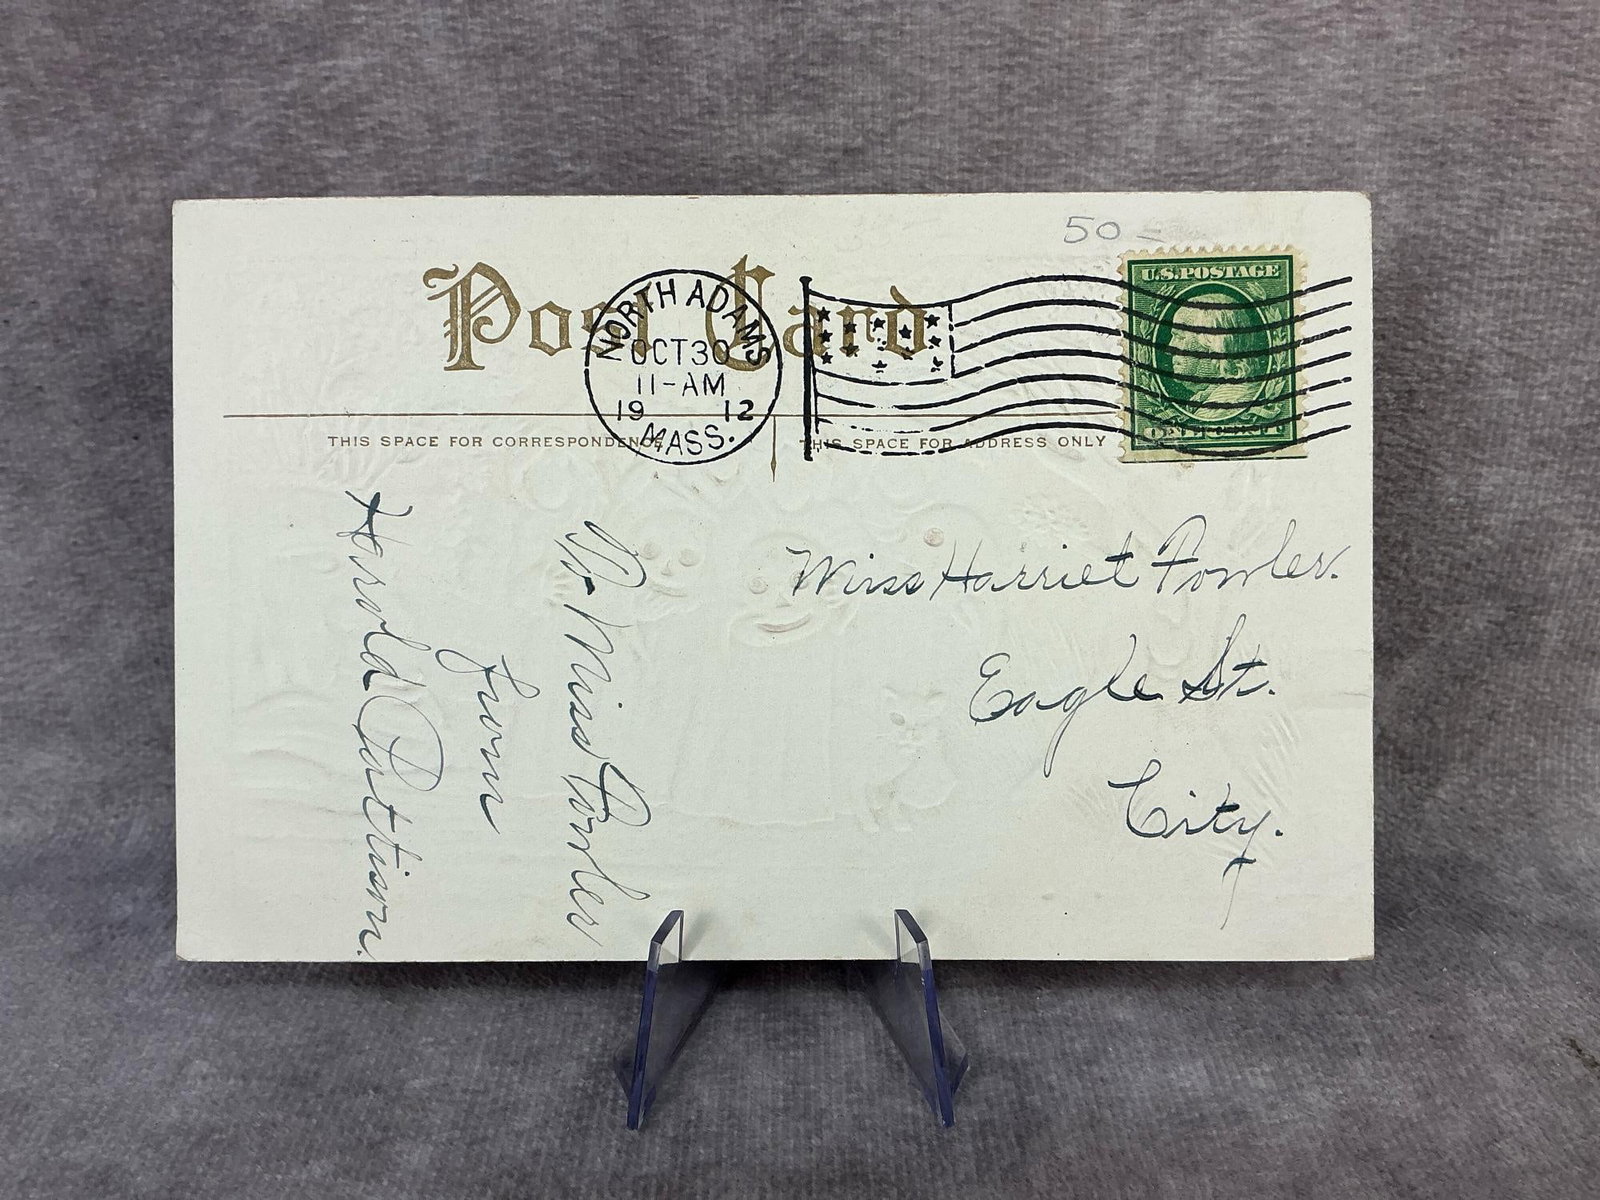 50 -
Post Card
NORTH ADAMS
OCT 30
11-AM
19 12
MASS.
U.S. POSTAGE
THIS SPACE FOR CORRESPONDENCE
THIS SPACE FOR ADDRESS ONLY
To Miss Fowler
from
Harold Pattison.
Miss Harriet Fowler.
Eagle St.
City.